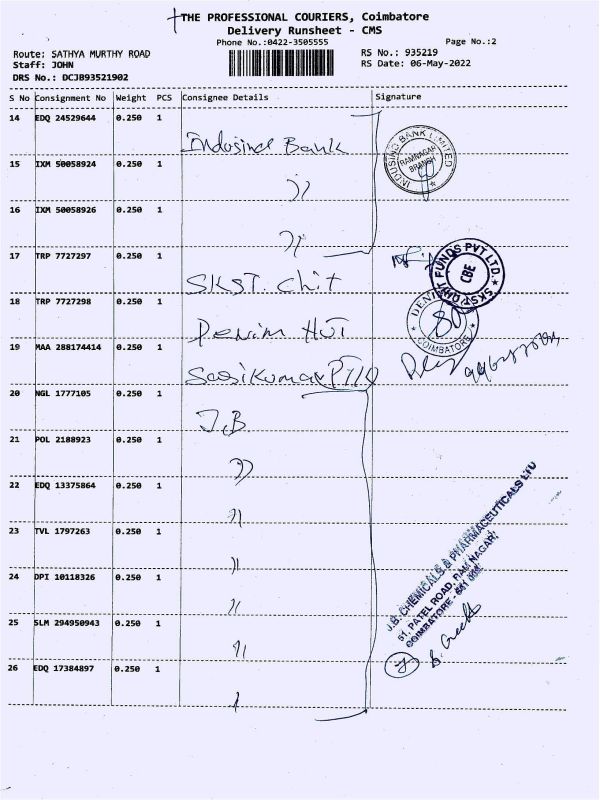 THE PROFESSIONAL COURIERS, Coimbatore
Delivery Runsheet - CMS
Phone No.:0422-3505555
Page No.:2
Route: SATHYA MURTHY ROAD
RS No.: 935219
Staff: JOHN
RS Date: 06-May-2022
DRS No.: DCJB93521902
S No Consignment No Weight PCS Consignee Details Signature
14 EDQ 24529644 0.250 1
Indusind Bank
INDUSIND BANK LIMITED
RAMNAGAR
BRANCH
15 IXM 50058924 0.250 1
''
16 IXM 50058926 0.250 1
''
17 TRP 7727297 0.250 1
SKST. Chit
SKST CHIT FUNDS PVT LTD.
CBE
18 TRP 7727298 0.250 1
Denim Hut
DENIM
COIMBATORE
19 MAA 288174414 0.250 1
Sasikumar
20 NGL 1777105 0.250 1
J.B
21 POL 2188923 0.250 1
''
22 EDQ 13375864 0.250 1
''
23 TVL 1797263 0.250 1
''
24 DPI 10118326 0.250 1
''
25 SLM 294950943 0.250 1
''
26 EDQ 17384897 0.250 1
J.B. CHEMICALS & PHARMACEUTICALS LTD
51, PATEL ROAD, RAM NAGAR,
COIMBATORE - 641 009.
7